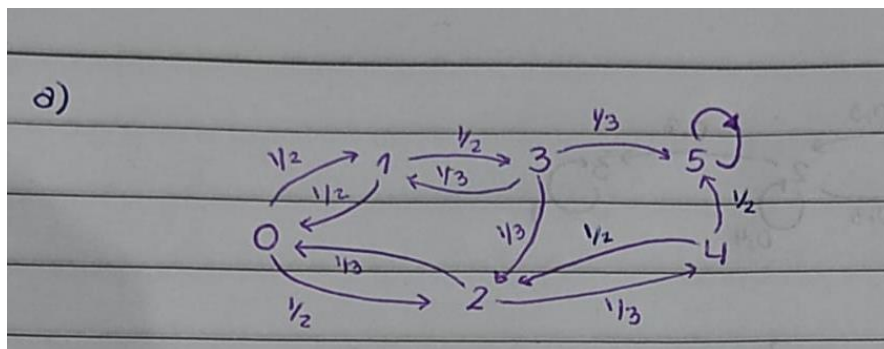 a)
1/2 1 1/2 3 1/3 5
1/2 1/3
0 1/3 1/2 4 1/2
1/3
1/2 2 1/3